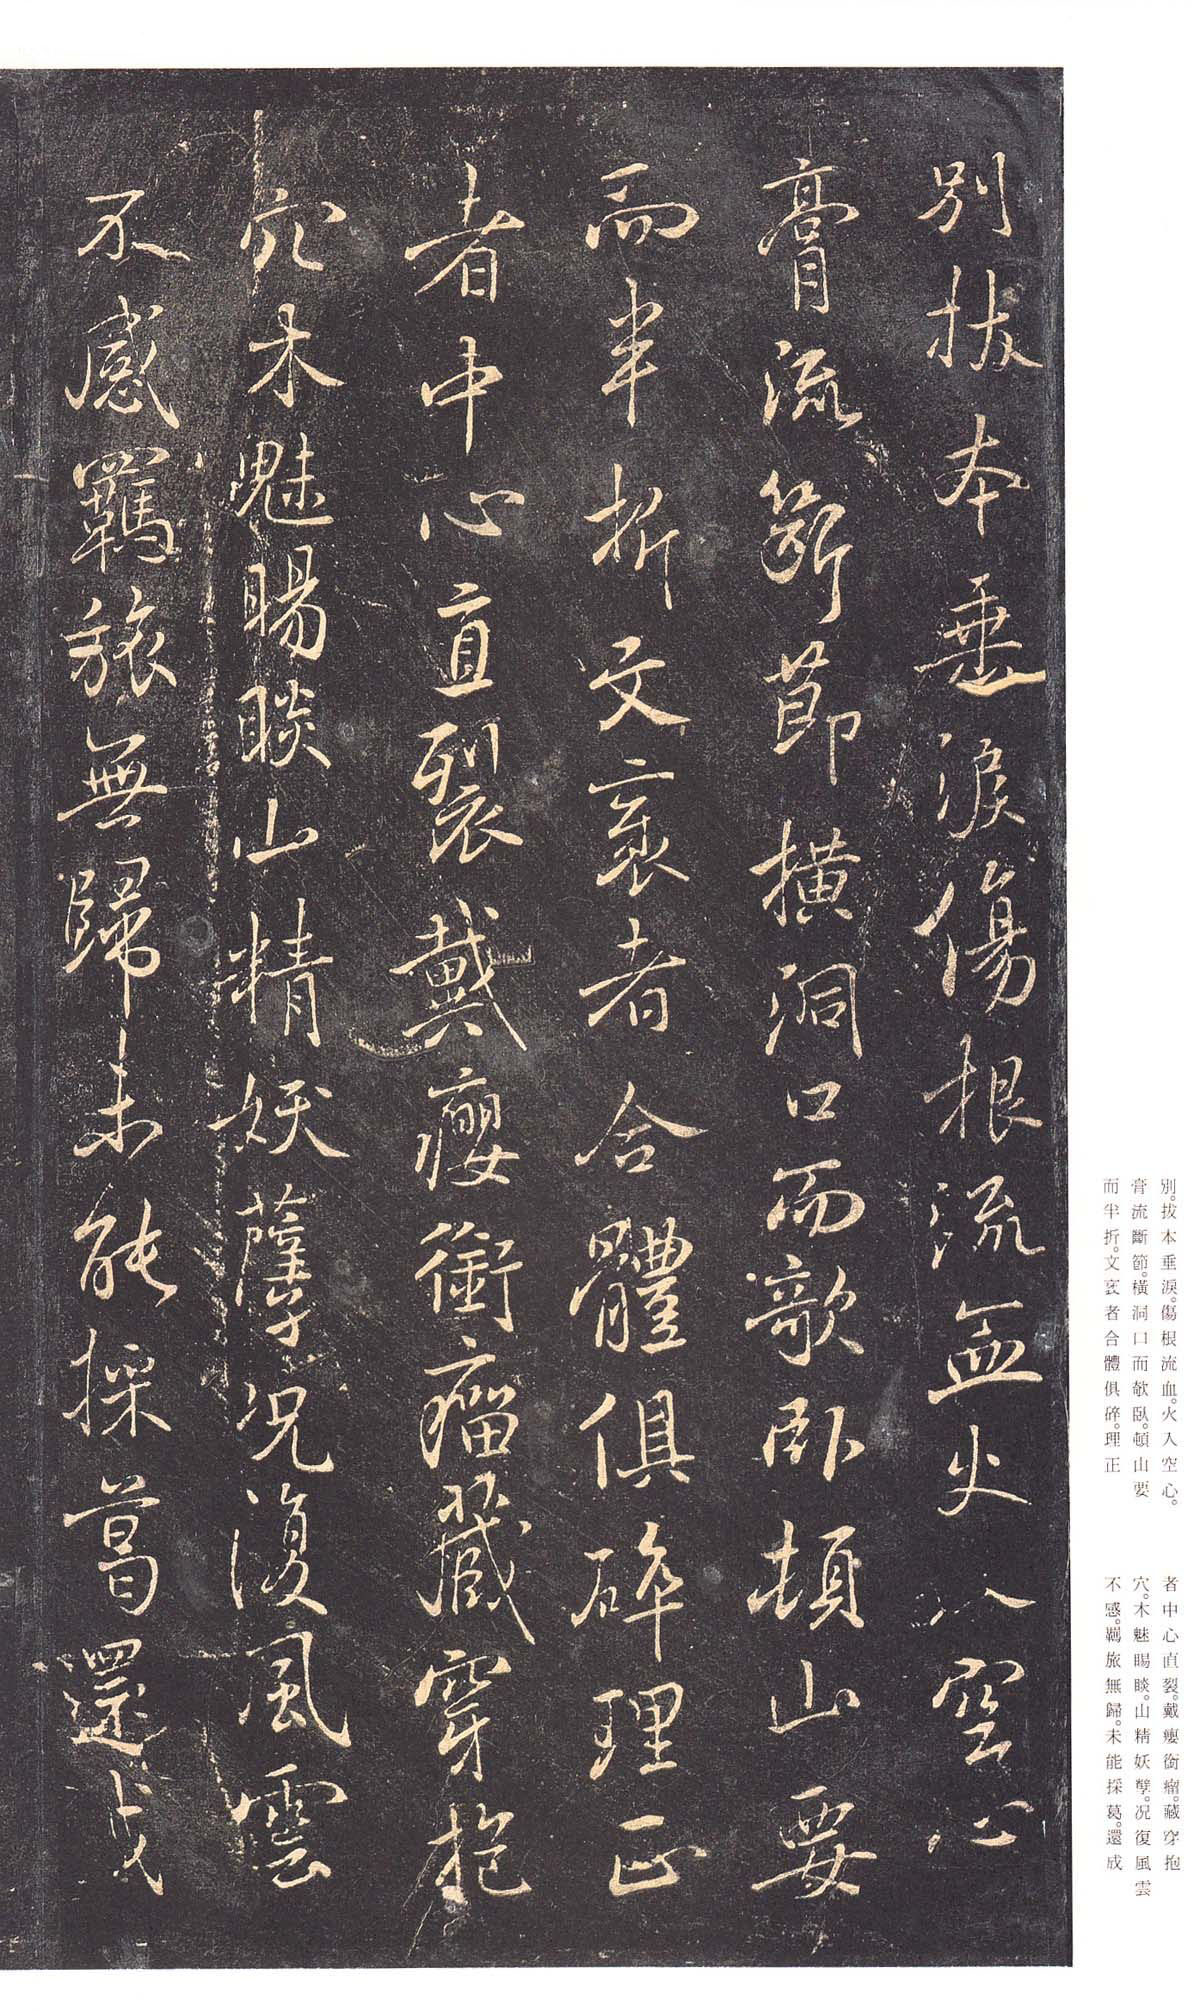 別拔本垂淚傷根流血火入空心
膏流斷節橫洞口而欹臥頓山要
而半折文衺者合體俱碎理正
者中心直裂戴癭銜瘤藏穿抱
穴木魅睗睒山精妖孽況復風雲
不感羈旅無歸未能採葛還成
別。拔本垂淚。傷根流血。火入空心。
膏流斷節。橫洞口而欹臥。頓山要
而半折。文衺者合體俱碎。理正
者中心直裂。戴癭銜瘤。藏穿抱
穴。木魅睗睒。山精妖孽。況復風雲
不感。羈旅無歸。未能採葛。還成